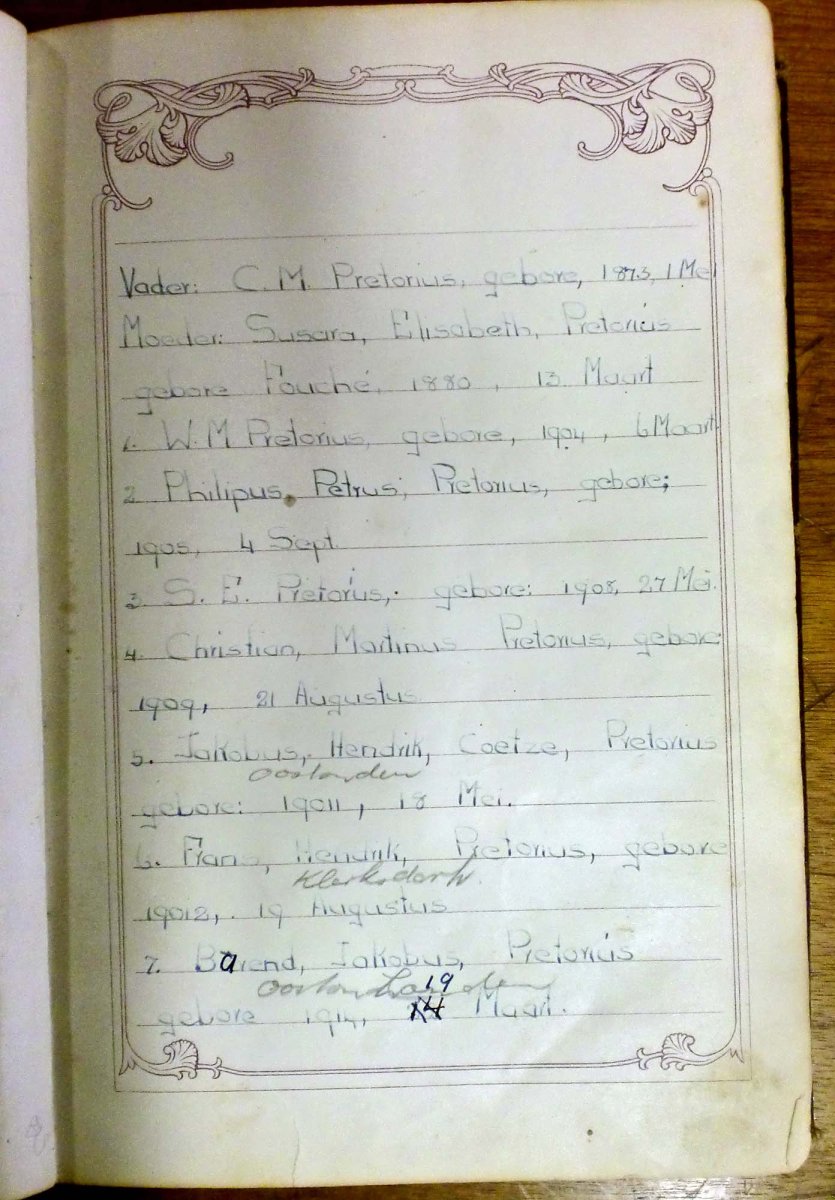 Vader: C. M. Pretorius, gebore, 1873, 1 Mei
Moeder: Susara, Elisabeth, Pretorius
gebore Fouché, 1880, 13 Maart
1. W. M Pretorius, gebore, 1904, 6 Maart
2 Philipus, Petrus, Pretorius, gebore;
1905, 4 Sept.
3 S. E. Pretorius, gebore: 1908, 27 Mei.
4. Christian, Martinus Pretorius, gebore
1909, 21 Augustus
5. Jakobus, Hendrik, Coetze, Pretorius
gebore: 19011, 18 Mei.
6. Frans, Hendrik, Pretorius, gebore
Klerksdorp.
19012, 19 Augustus
7. Barend, Jakobus, Pretorius
19
gebore 1914, Maart.